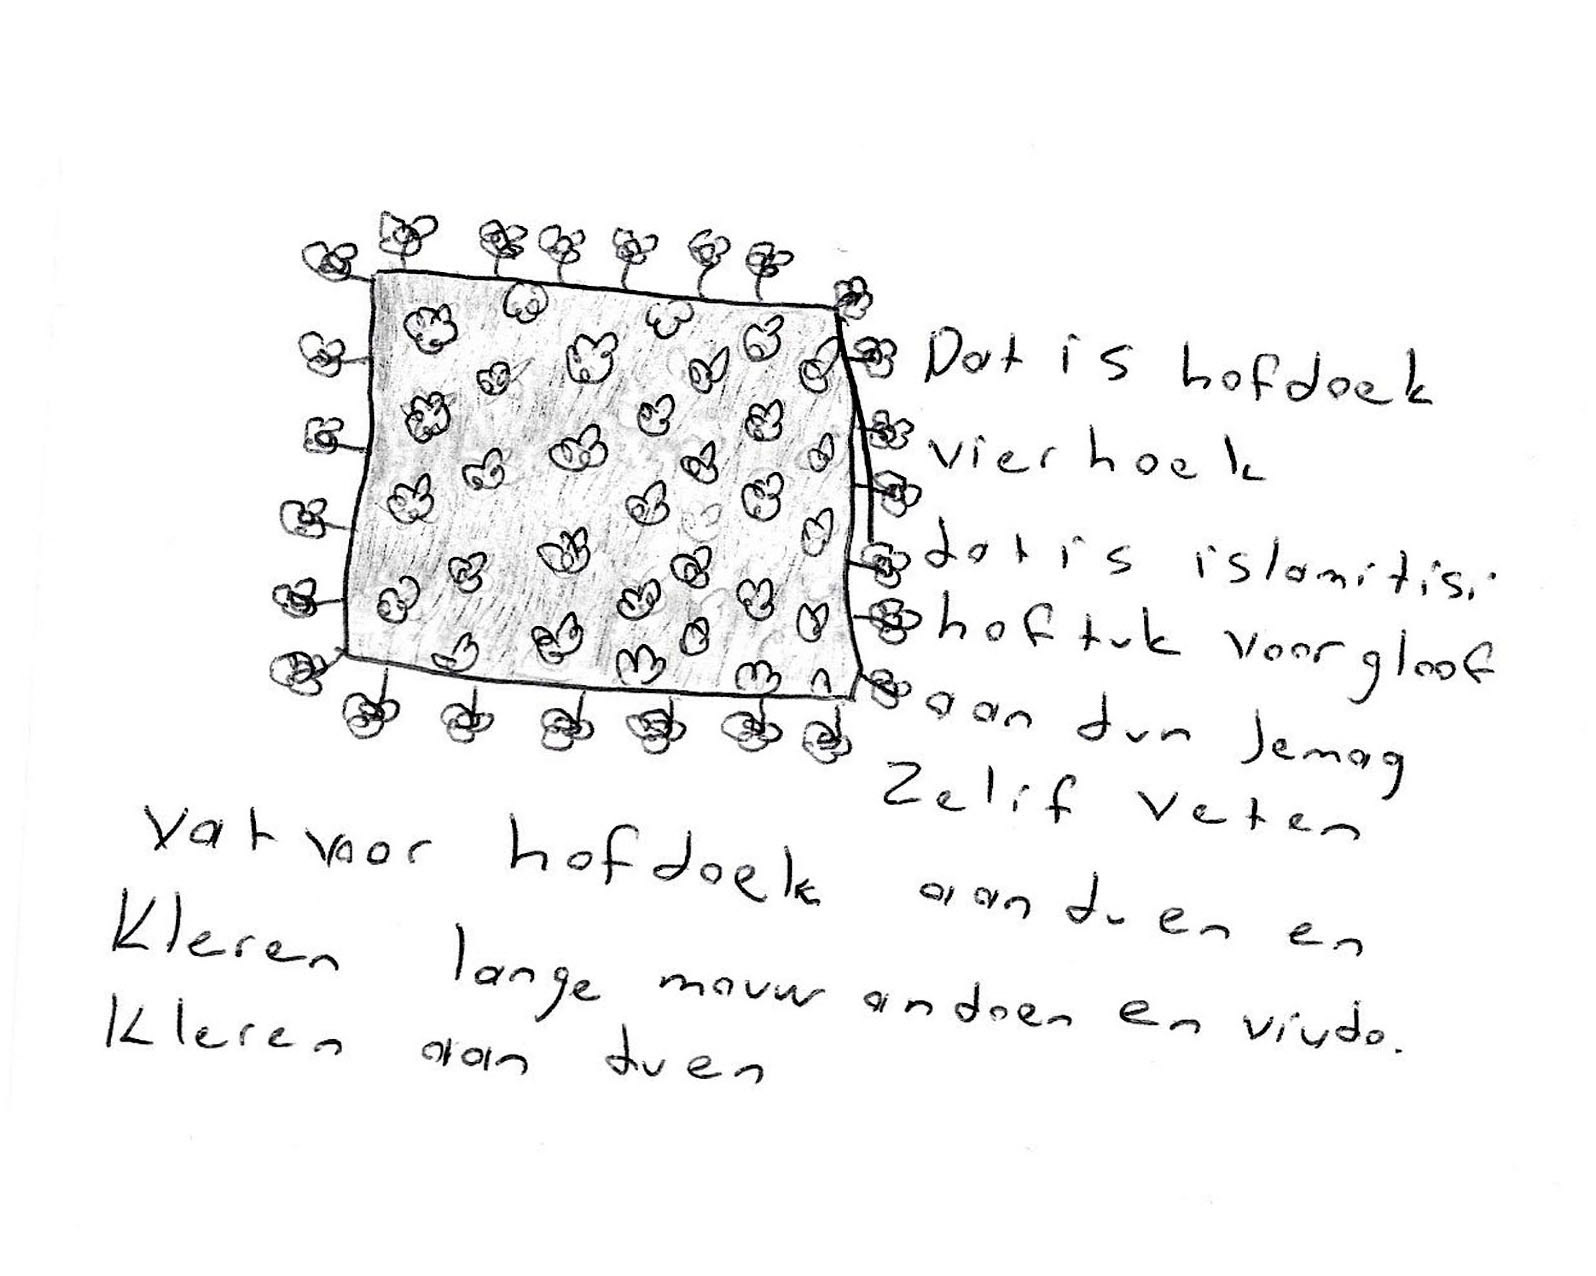 Dat is hofdoek
vierhoek
dat is islamitis.
hoftuk voor gloof
aan dun Jemag
Zelif veten
vat voor hofdoek aan duen en
Kleren lange mouw andoen en viudo.
Kleren aan duen